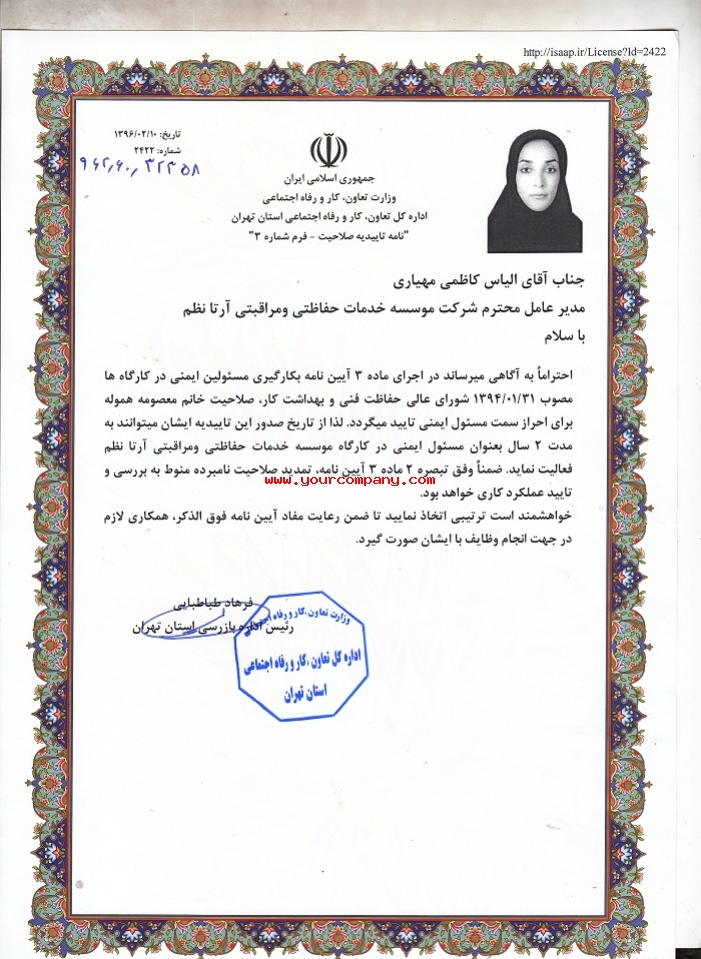 http://isaap.ir/License?Id=2422
تاریخ: ۱۳۹۶/۰۲/۱۰
شماره: ۲۴۲۲
۹۶۲٫۶۰٫۳۲۳۵۸
جمهوری اسلامی ایران
وزارت تعاون، کار و رفاه اجتماعی
اداره کل تعاون، کار و رفاه اجتماعی استان تهران
"نامه تاییدیه صلاحیت - فرم شماره ۳"
جناب آقای الیاس کاظمی مهیاری
مدیر عامل محترم شرکت موسسه خدمات حفاظتی ومراقبتی آرتا نظم
با سلام
احتراماً به آگاهی میرساند در اجرای ماده ۳ آیین نامه بکارگیری مسئولین ایمنی در کارگاه ها
مصوب ۱۳۹۴/۰۱/۳۱ شورای عالی حفاظت فنی و بهداشت کار، صلاحیت خانم معصومه هموله
برای احراز سمت مسئول ایمنی تایید میگردد. لذا از تاریخ صدور این تاییدیه ایشان میتوانند به
مدت ۲ سال بعنوان مسئول ایمنی در کارگاه موسسه خدمات حفاظتی ومراقبتی آرتا نظم
فعالیت نماید. ضمناً وفق تبصره ۲ ماده ۳ آیین نامه، تمدید صلاحیت نامبرده منوط به بررسی و
www.yourcompany.com
تایید عملکرد کاری خواهد بود.
خواهشمند است ترتیبی اتخاذ نمایید تا ضمن رعایت مفاد آیین نامه فوق الذکر، همکاری لازم
در جهت انجام وظایف با ایشان صورت گیرد.
فرهاد طباطبایی
رئیس اداره بازرسی استان تهران
وزارت تعاون ،کار و رفاه اجتماعی
اداره کل تعاون ،کار و رفاه اجتماعی
استان تهران